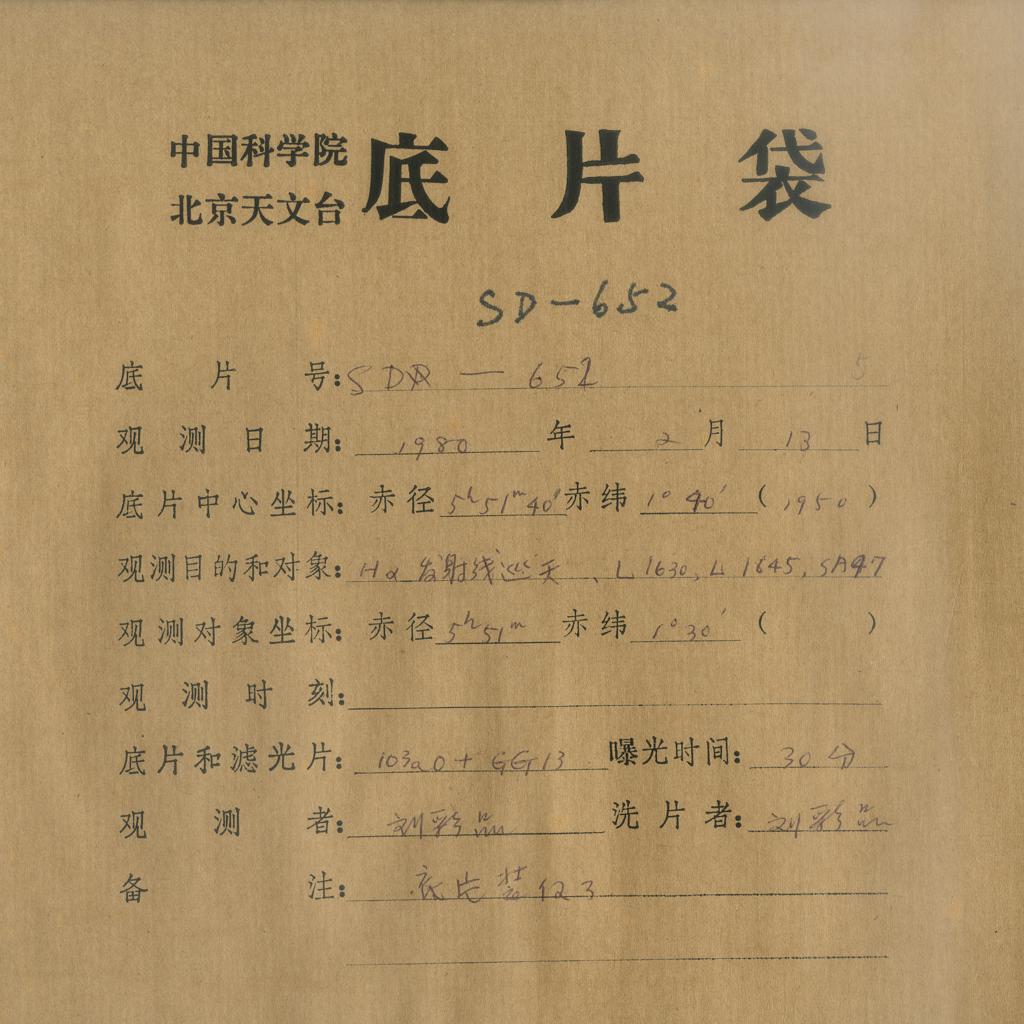 中国科学院
北京天文台
底片袋
SD-652
底片号: SDR — 652 5
观测日期: 1980 年 2 月 13 日
底片中心坐标: 赤径 5h51m40s 赤纬 1° 40′ ( 1950 )
观测目的和对象: Hα 发射线巡天、L 1630, L 1645, SA97
观测对象坐标: 赤径 5h51m 赤纬 1° 30′ ( )
观测时刻:
底片和滤光片: 103aO + GG13 曝光时间: 30 分
观测者: 刘彩品 洗片者: 刘彩品
备注: 底片装仅了